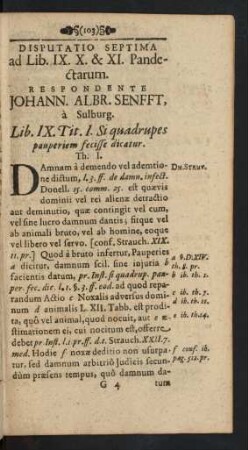 (103)
DISPUTATIO SEPTIMA
ad Lib. IX. X. & XI. Pande-
ctarum.
RESPONDENTE
JOHANN. ALBR. SENFFT,
à Sulburg.
Lib. IX. Tit. I. Si quadrupes
pauperiem fecisse dicatur.
Th. I.
DAmnam à demendo vel ademtio-
ne dictum, l. 3. ff. de damn. infect.
Donell. 15. comm. 25. est quævis
dominii vel rei alienæ detractio
aut deminutio, quæ contingit vel cum,
vel sine lucro damnum dantis; fitque vel
ab animali bruto, vel ab homine, eoque
vel libero vel servo. [conf. Strauch. XIX.
11. pr.] Quod à bruto infertur, Pauperies
a dicitur, damnum scil. sine injuria b
facientis datum, pr. Inst. si quadrup. pau-
per. fec. dic. l. 1. §. 3. ff. eod. ad quod repa-
randum Actio c Noxalis adversus domi-
num d animalis L. XII. Tabb. est prodi-
ta, quô vel animal, quod nocuit, aut e æ-
stimationem ei, cui nocitum est, offerre
debet pr. Inst. l. 1. pr. ff. d. t. Strauch. XXII. 7.
med. Hodie f noxæ deditio non usurpa-
tur, sed damnum arbitriô Judicis secun-
dùm præsens tempus, quô damnum da-
G 4 tum
Dn. Struv.
a 9. D. XIV.
th. 8. pr.
b ib. th. 1.
c ib. th. 7.
d ib. th. 11.
e ib. th. 14.
f conf. ib.
pag. 512. pr.